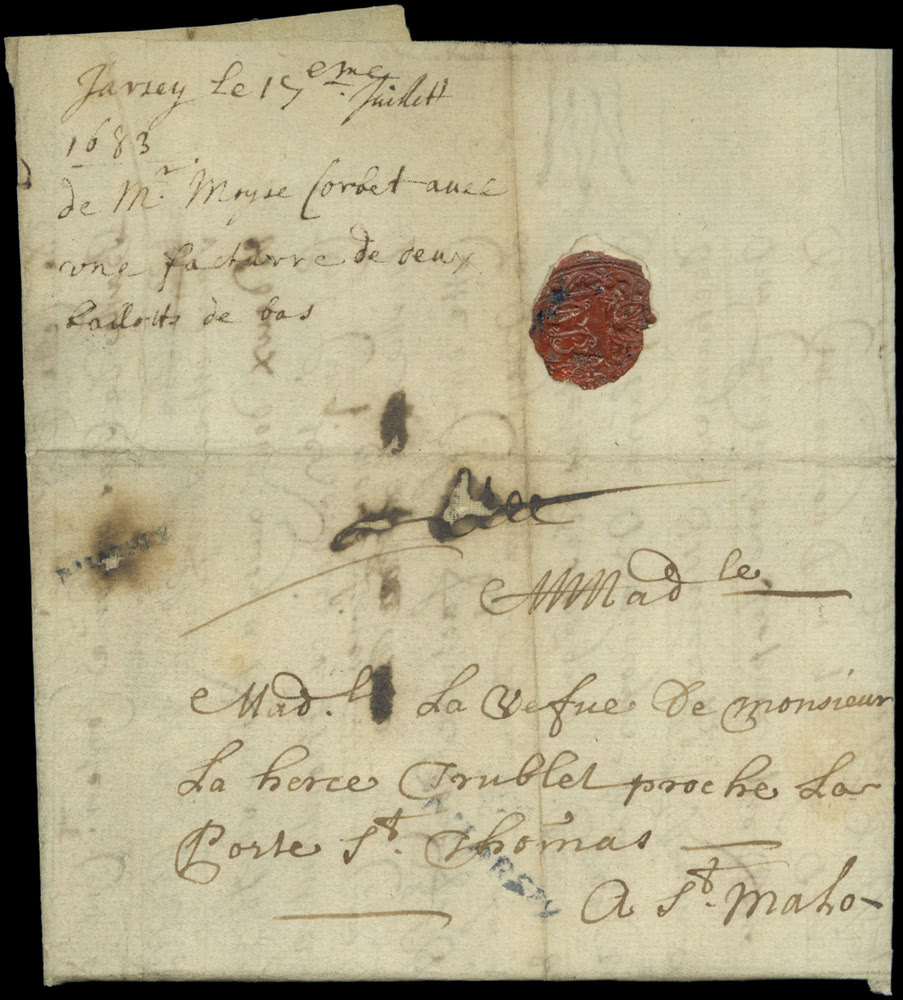 Jarsey Le 15eme Juillett
1683
de Mr. Moyse Corbet auec
vne facturre de deux
ballotts de bas
MMad le
Mad.le La Vefue De monsieur
La herce Trublet proche La
Porte St. Thomas
A St. Malo